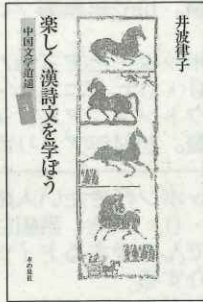 井波律子
楽しく漢詩文を学ぼう
中国文学逍遥
本の泉社